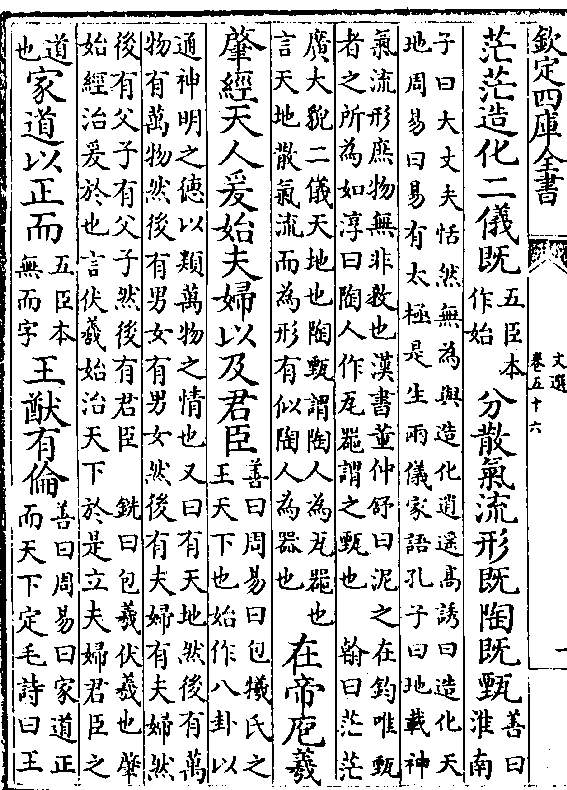 欽定四庫全書
文選
卷五十六
一
茫茫造化二儀既
五臣本
作始
分散氣流形既陶既甄
善曰
淮南
子曰大丈夫恬然無為與造化逍遥高誘曰造化天
地周易曰易有太極是生兩儀家語孔子曰地載神
氣流形庶物無非教也漢書董仲舒曰泥之在鈞唯甄
者之所為如淳曰陶人作瓦器謂之甄也 翰曰茫茫
廣大貌二儀天地也陶甄謂陶人為瓦器也
言天地散氣流而為形有似陶人為器也
在帝庖羲
肇經天人爰始夫婦以及君臣
善曰周易曰包犧氏之
王天下也始作八卦以
通神明之德以類萬物之情也又曰有天地然後有萬
物有萬物然後有男女有男女然後有夫婦有夫婦然
後有父子有父子然後有君臣 銑曰包羲伏羲也肇
始經治爰於也言伏羲始治天下於是立夫婦君臣之
道
也
家道以正而
五臣本
無而字
王猷有倫
善曰周易曰家道正
而天下定毛詩曰王